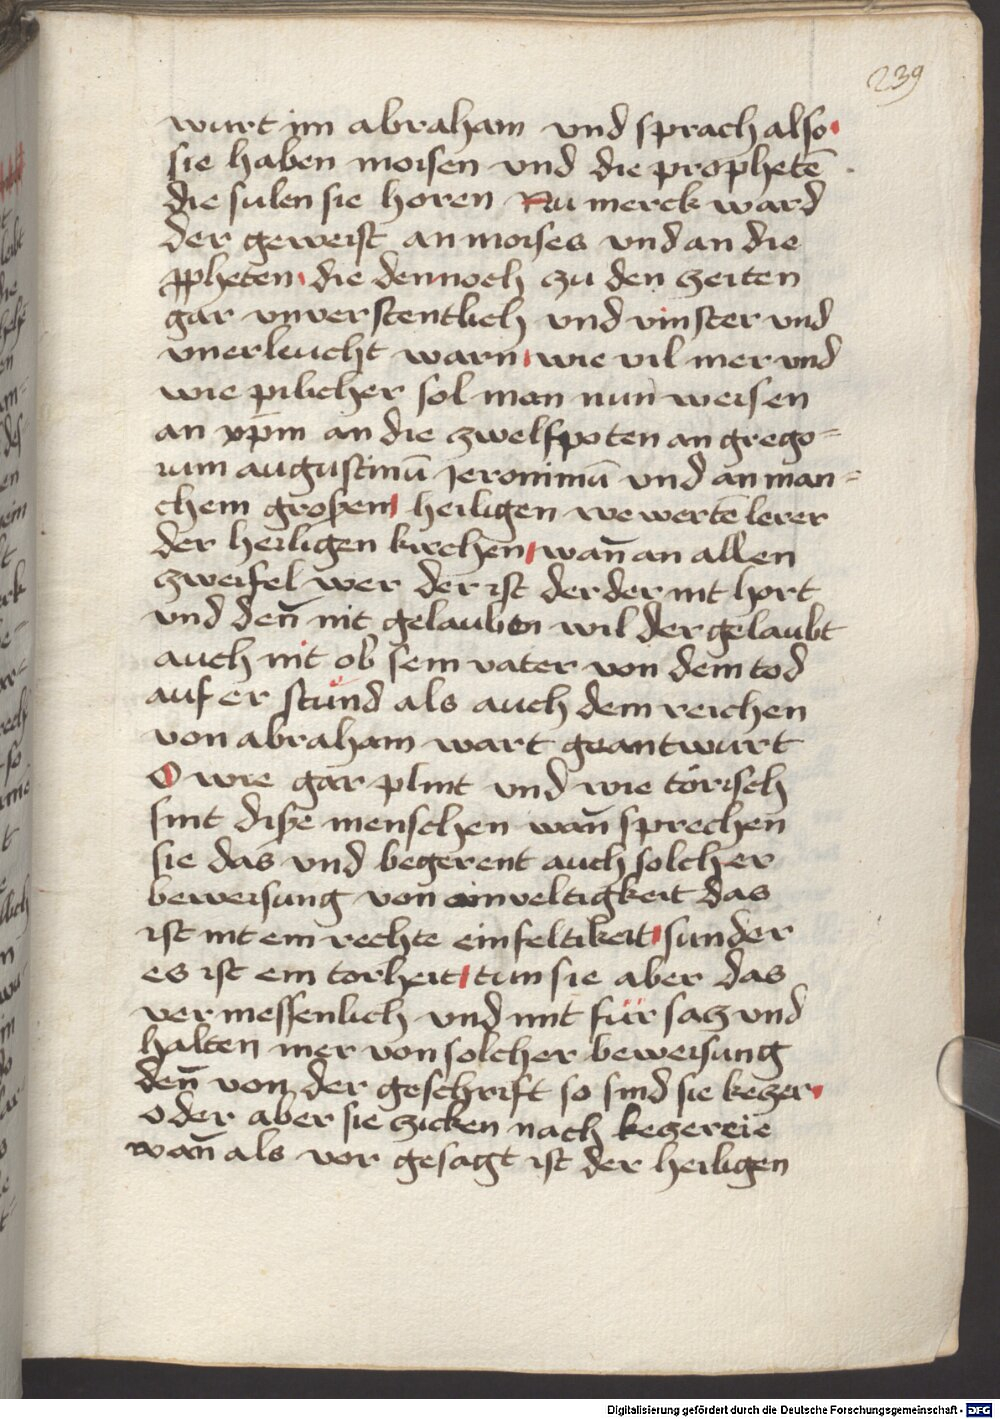 239
wurt im abraham vnd sprach also
sie haben moisen vnd die prophetē .
die sulen sie horen Nu merck ward
der geweist an moises vnd an die
ꝓpheten die dennoch zu den zeiten
gar vnverstentlich vnd vinster vnd
vnerleucht warn wie vil mer vnd
wie pilicher sol man nun weisen
an xp̄m an die zwelfpoten an grego=
rium augustinū Jeronimū vnd an man=
chem groẞem heiligen bewertē lerer
der heiligen kirchen wan̄ an allen
zweifel wer der ist der der nit hort
vnd den̄ nit gelauben wil der gelaubt
auch nit ob sein vater von dem tod
auf er stünd als auch dem reichen
von abraham wart geantwurt
O wie gar plint vnd wie törisch
sint diße menschen wan̄ sprechen
sie das vnd begerent auch solcher
beweisung von einveltigkeit das
ist nit ein rechte einfeltikeit sunder
es ist ein torheit tun sie aber das
vermessenlich vnd mit für sacz vnd
halten mer von solcher beweisung
den̄ von der geschrift so sind sie keczer
oder aber sie zicken nach keczereie
wan̄ als vor gesagt ist der heiligen
Digitalisierung gefördert durch die Deutsche Forschungsgemeinschaft - DFG